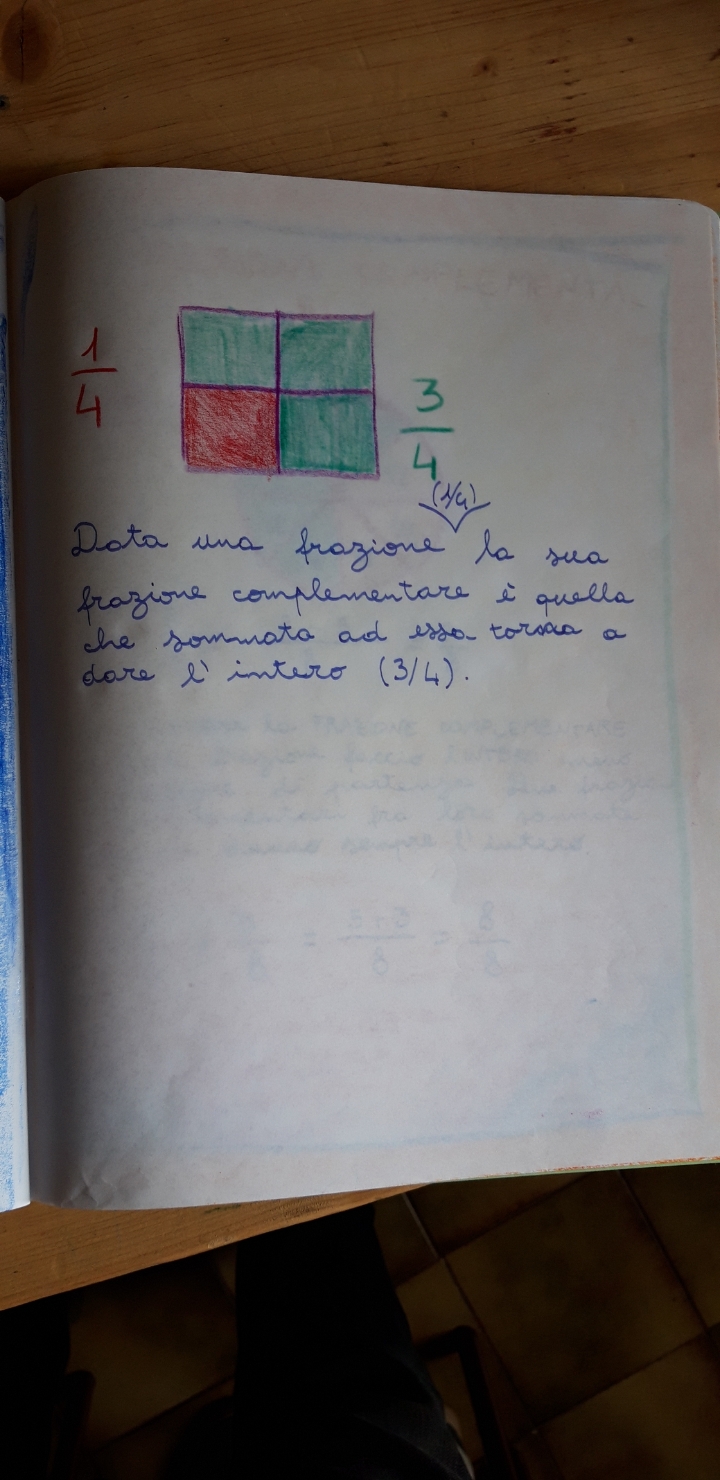 1/4
3/4
(1/4)
Data una frazione la sua
frazione complementare è quella
che sommata ad essa torna a
dare l'intero (3/4).